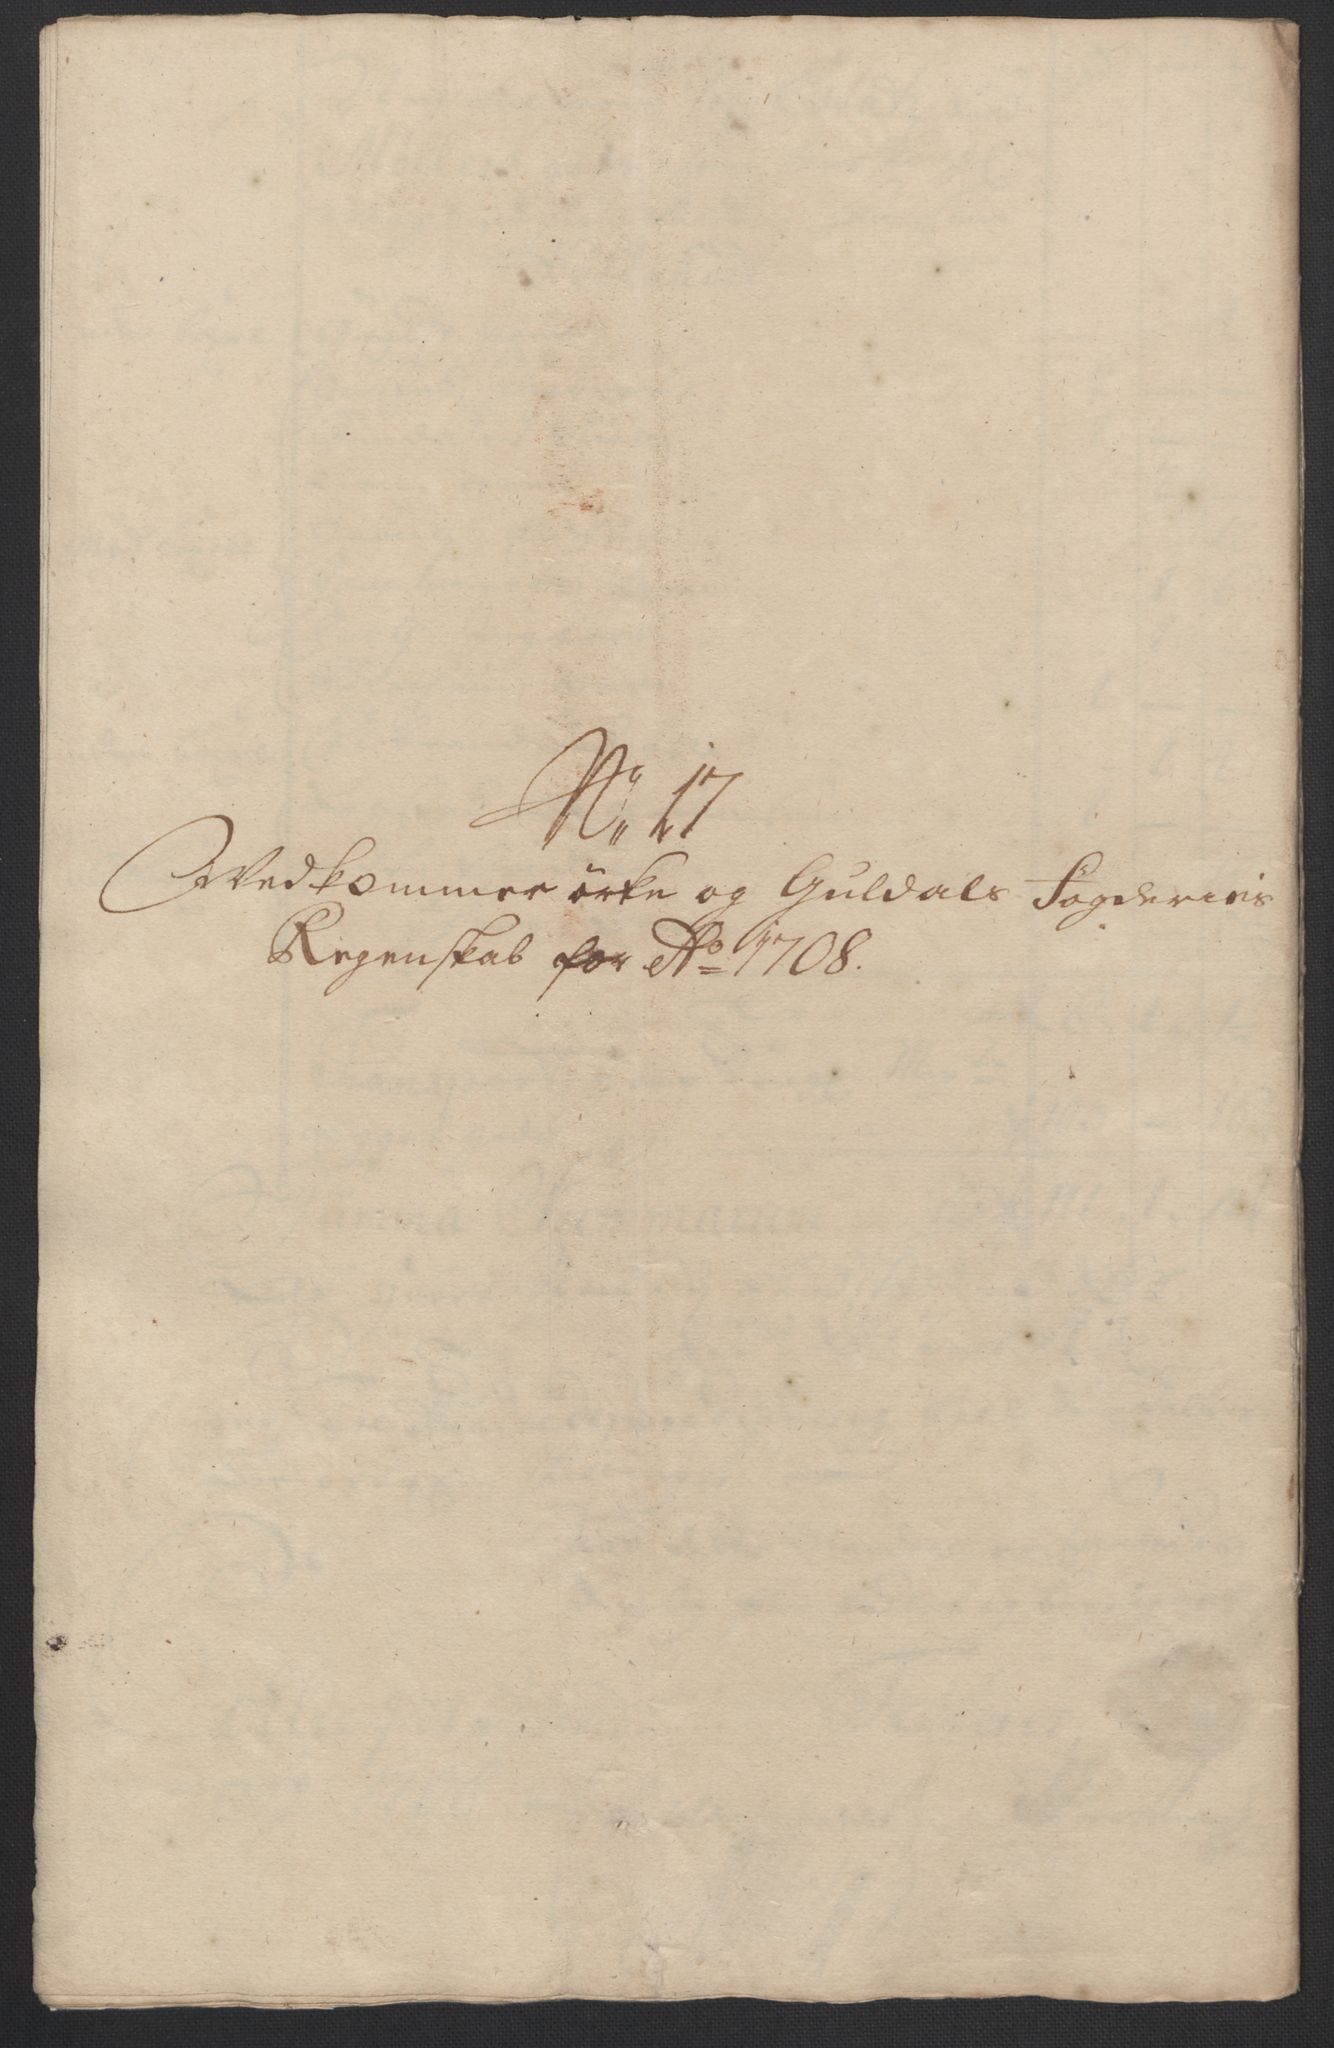 No 17
Vedkommer örke og Guldals Fogderies
Regenskab for Ao 1708.